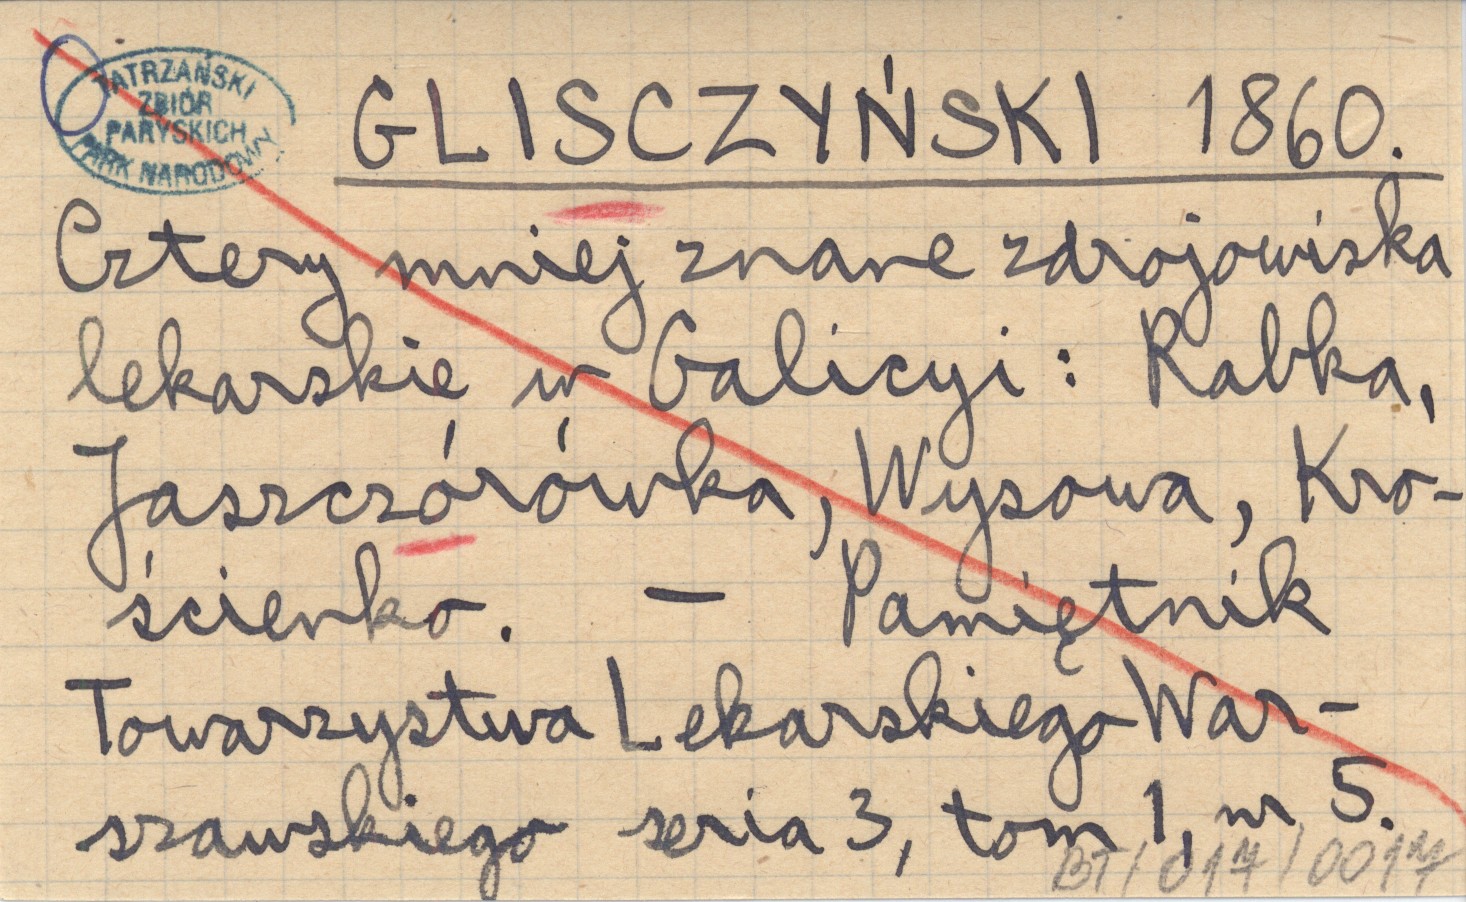 TATRZAŃSKI
ZBIÓR
PARYSKICH
PARK NARODOWY
GLISCZYŃSKI 1860.
Cztery mniej znane zdrojowiska
lekarskie w Galicyi : Rabka,
Jaszczórówka, Wysowa, Kro-
ścienko. — Pamiętnik
Towarzystwa Lekarskiego War-
szawskiego seria 3, tom 1, nr 5.
BT/017/0017